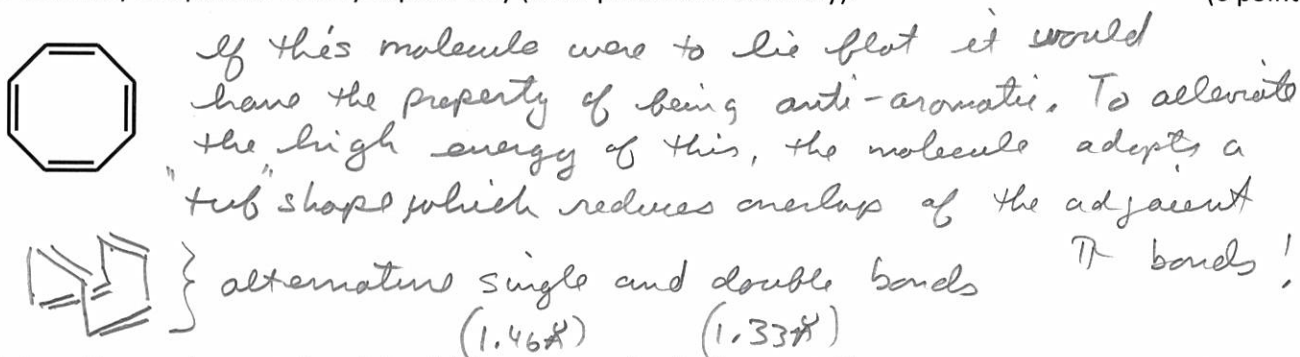 If this molecule were to lie flat it would
have the property of being anti-aromatic. To alleviate
the high energy of this, the molecule adopts a
"tub" shape which reduces overlap of the adjacent
π bonds!
} alternature single and double bonds
(1.46Å) (1.33Å)